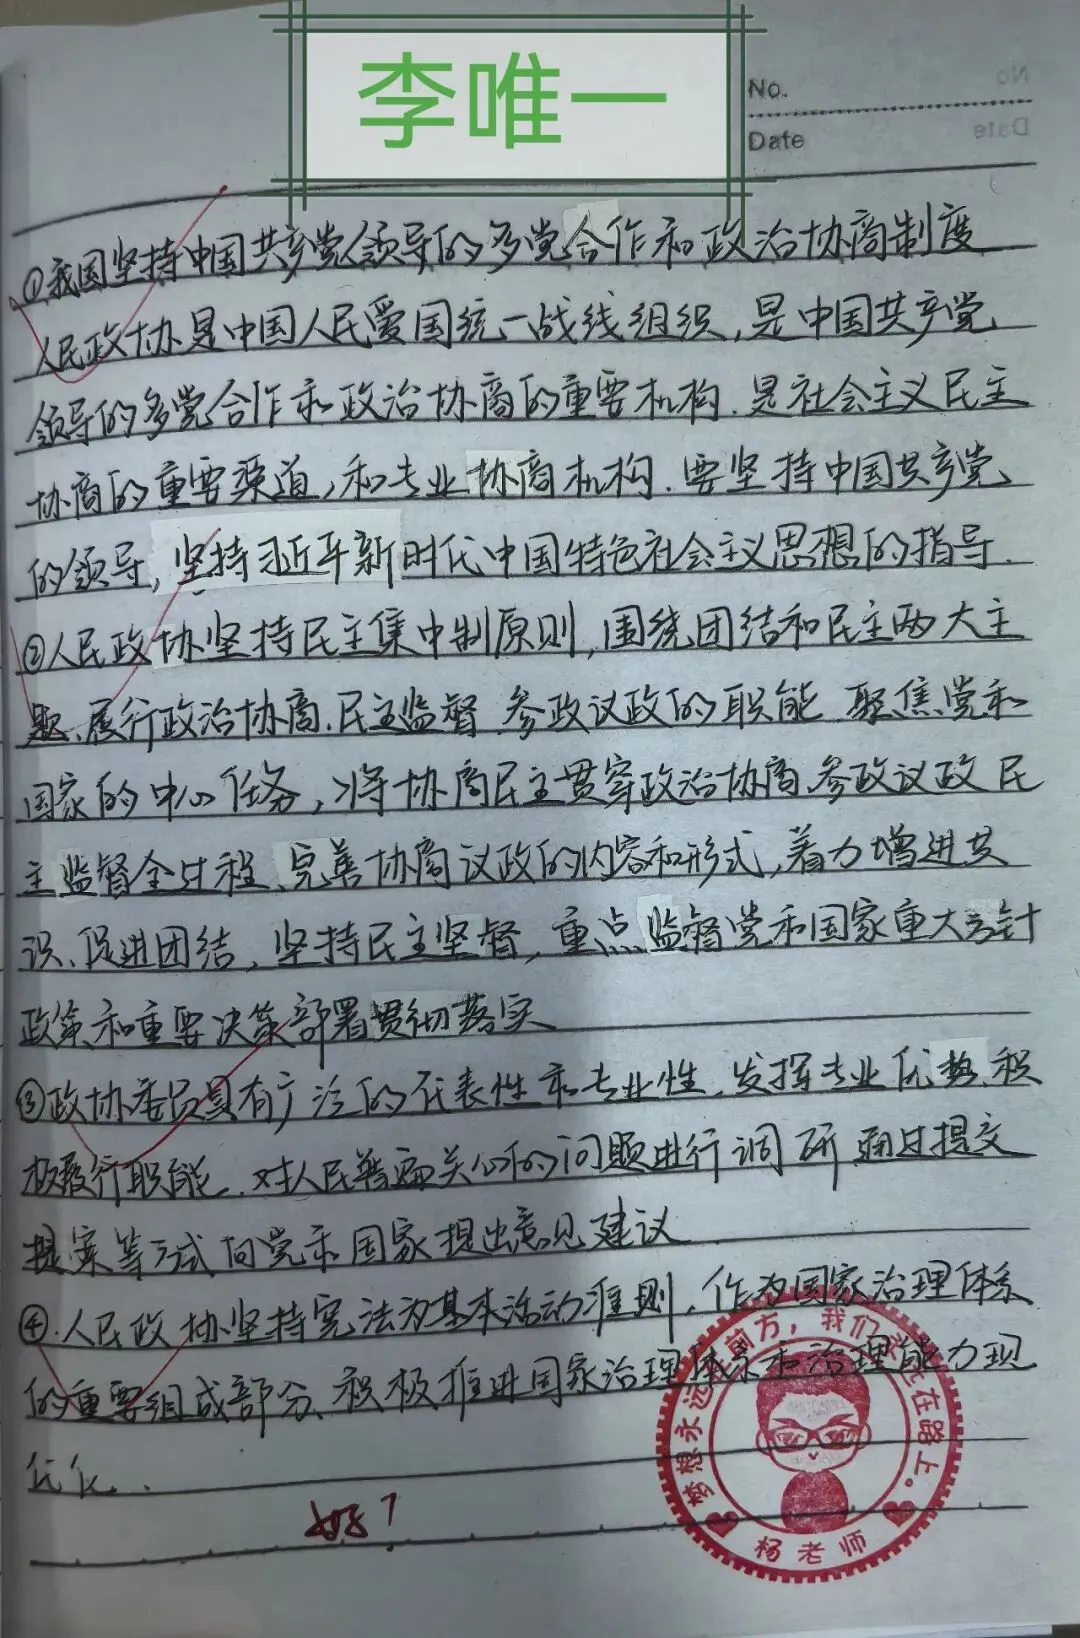 李唯一
No.
Date
①我国坚持中国共产党领导的多党合作和政治协商制度
人民政协是中国人民爱国统一战线组织,是中国共产党
领导的多党合作和政治协商的重要机构.是社会主义民主
协商的重要渠道,和专业协商机构.要坚持中国共产党
的领导,坚持习近平新时代中国特色社会主义思想的指导.
②人民政协坚持民主集中制原则,围绕团结和民主两大主
题、履行政治协商.民主监督.参政议政的职能.聚焦党和
国家的中心任务,将协商民主贯穿政治协商.参政议政民
主监督全过程、完善协商议政的内容和形式,着力增进共
识、促进团结,坚持民主坚督,重点监督党和国家重大方针
政策和重要决策部署贯彻落实
③政协委员具有广泛的代表性和专业性.发挥专业优势.积
极履行职能.对人民普遍关心的问题进行调研.通过提交
提案等方式向党和国家提出意见建议
④.人民政协坚持宪法为基本活动准则,作为国家治理体系
的重要组成部分、积极推进国家治理体系和治理能力现
代化.
好
梦想永远在前方，我们在路上。
杨老师